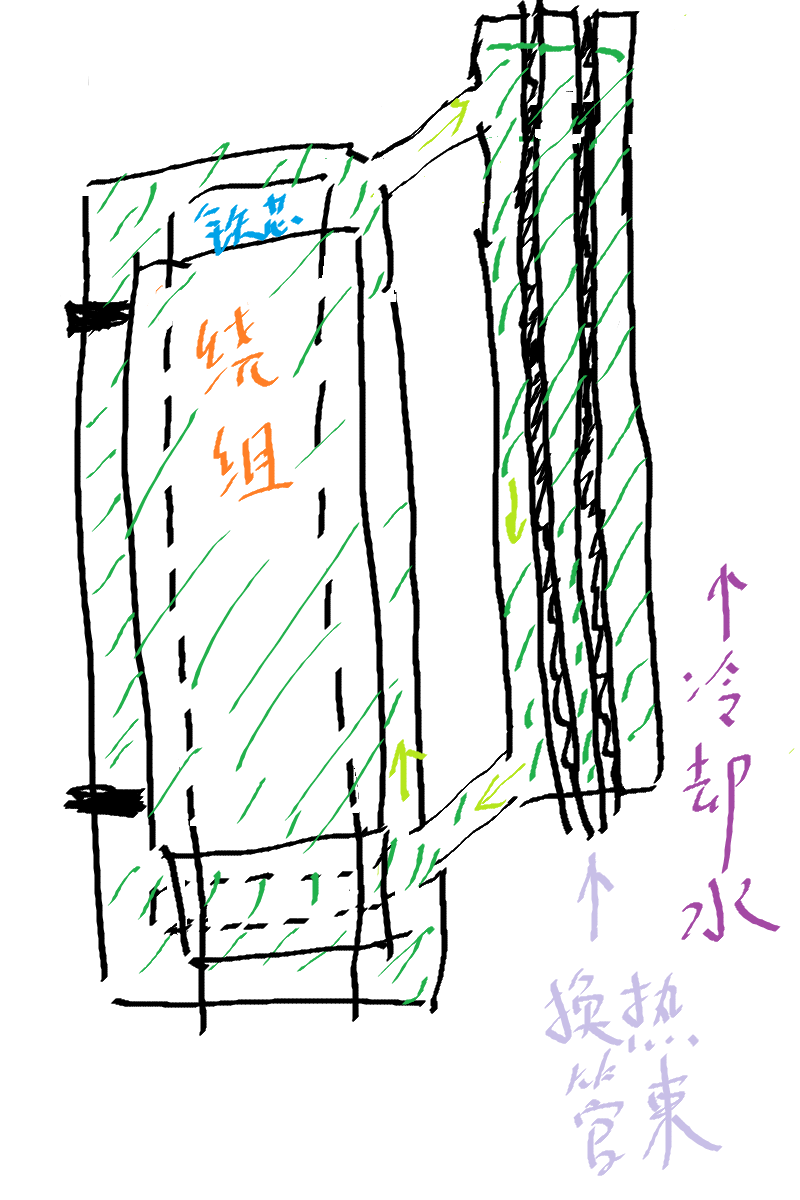 铁芯
绕组
冷却水
换热
管束